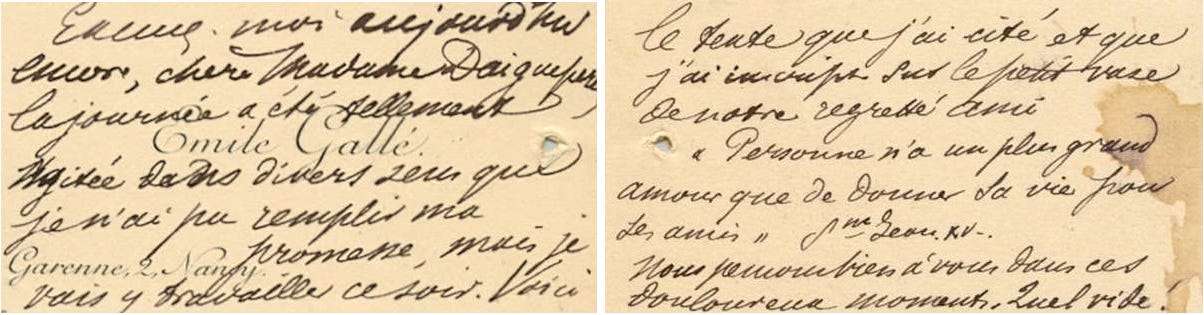 Excusez-moi aujourd'hui
encore, chère Madame Daigueperse,
la journée a été tellement
Emile Gallé.
agitée dans divers sens que
je n'ai pu remplir ma
promesse, mais je
Garenne, 2, Nancy.
vais y travailler ce soir. Voici
le texte que j'ai cité et que
j'ai inscript sur le petit vase
de notre regretté ami
" Personne n'a un plus grand
amour que de donner sa vie pour
ses amis " Jean. XV-.
Nous pensons bien à vous dans ces
douloureux moments. Quel vide!